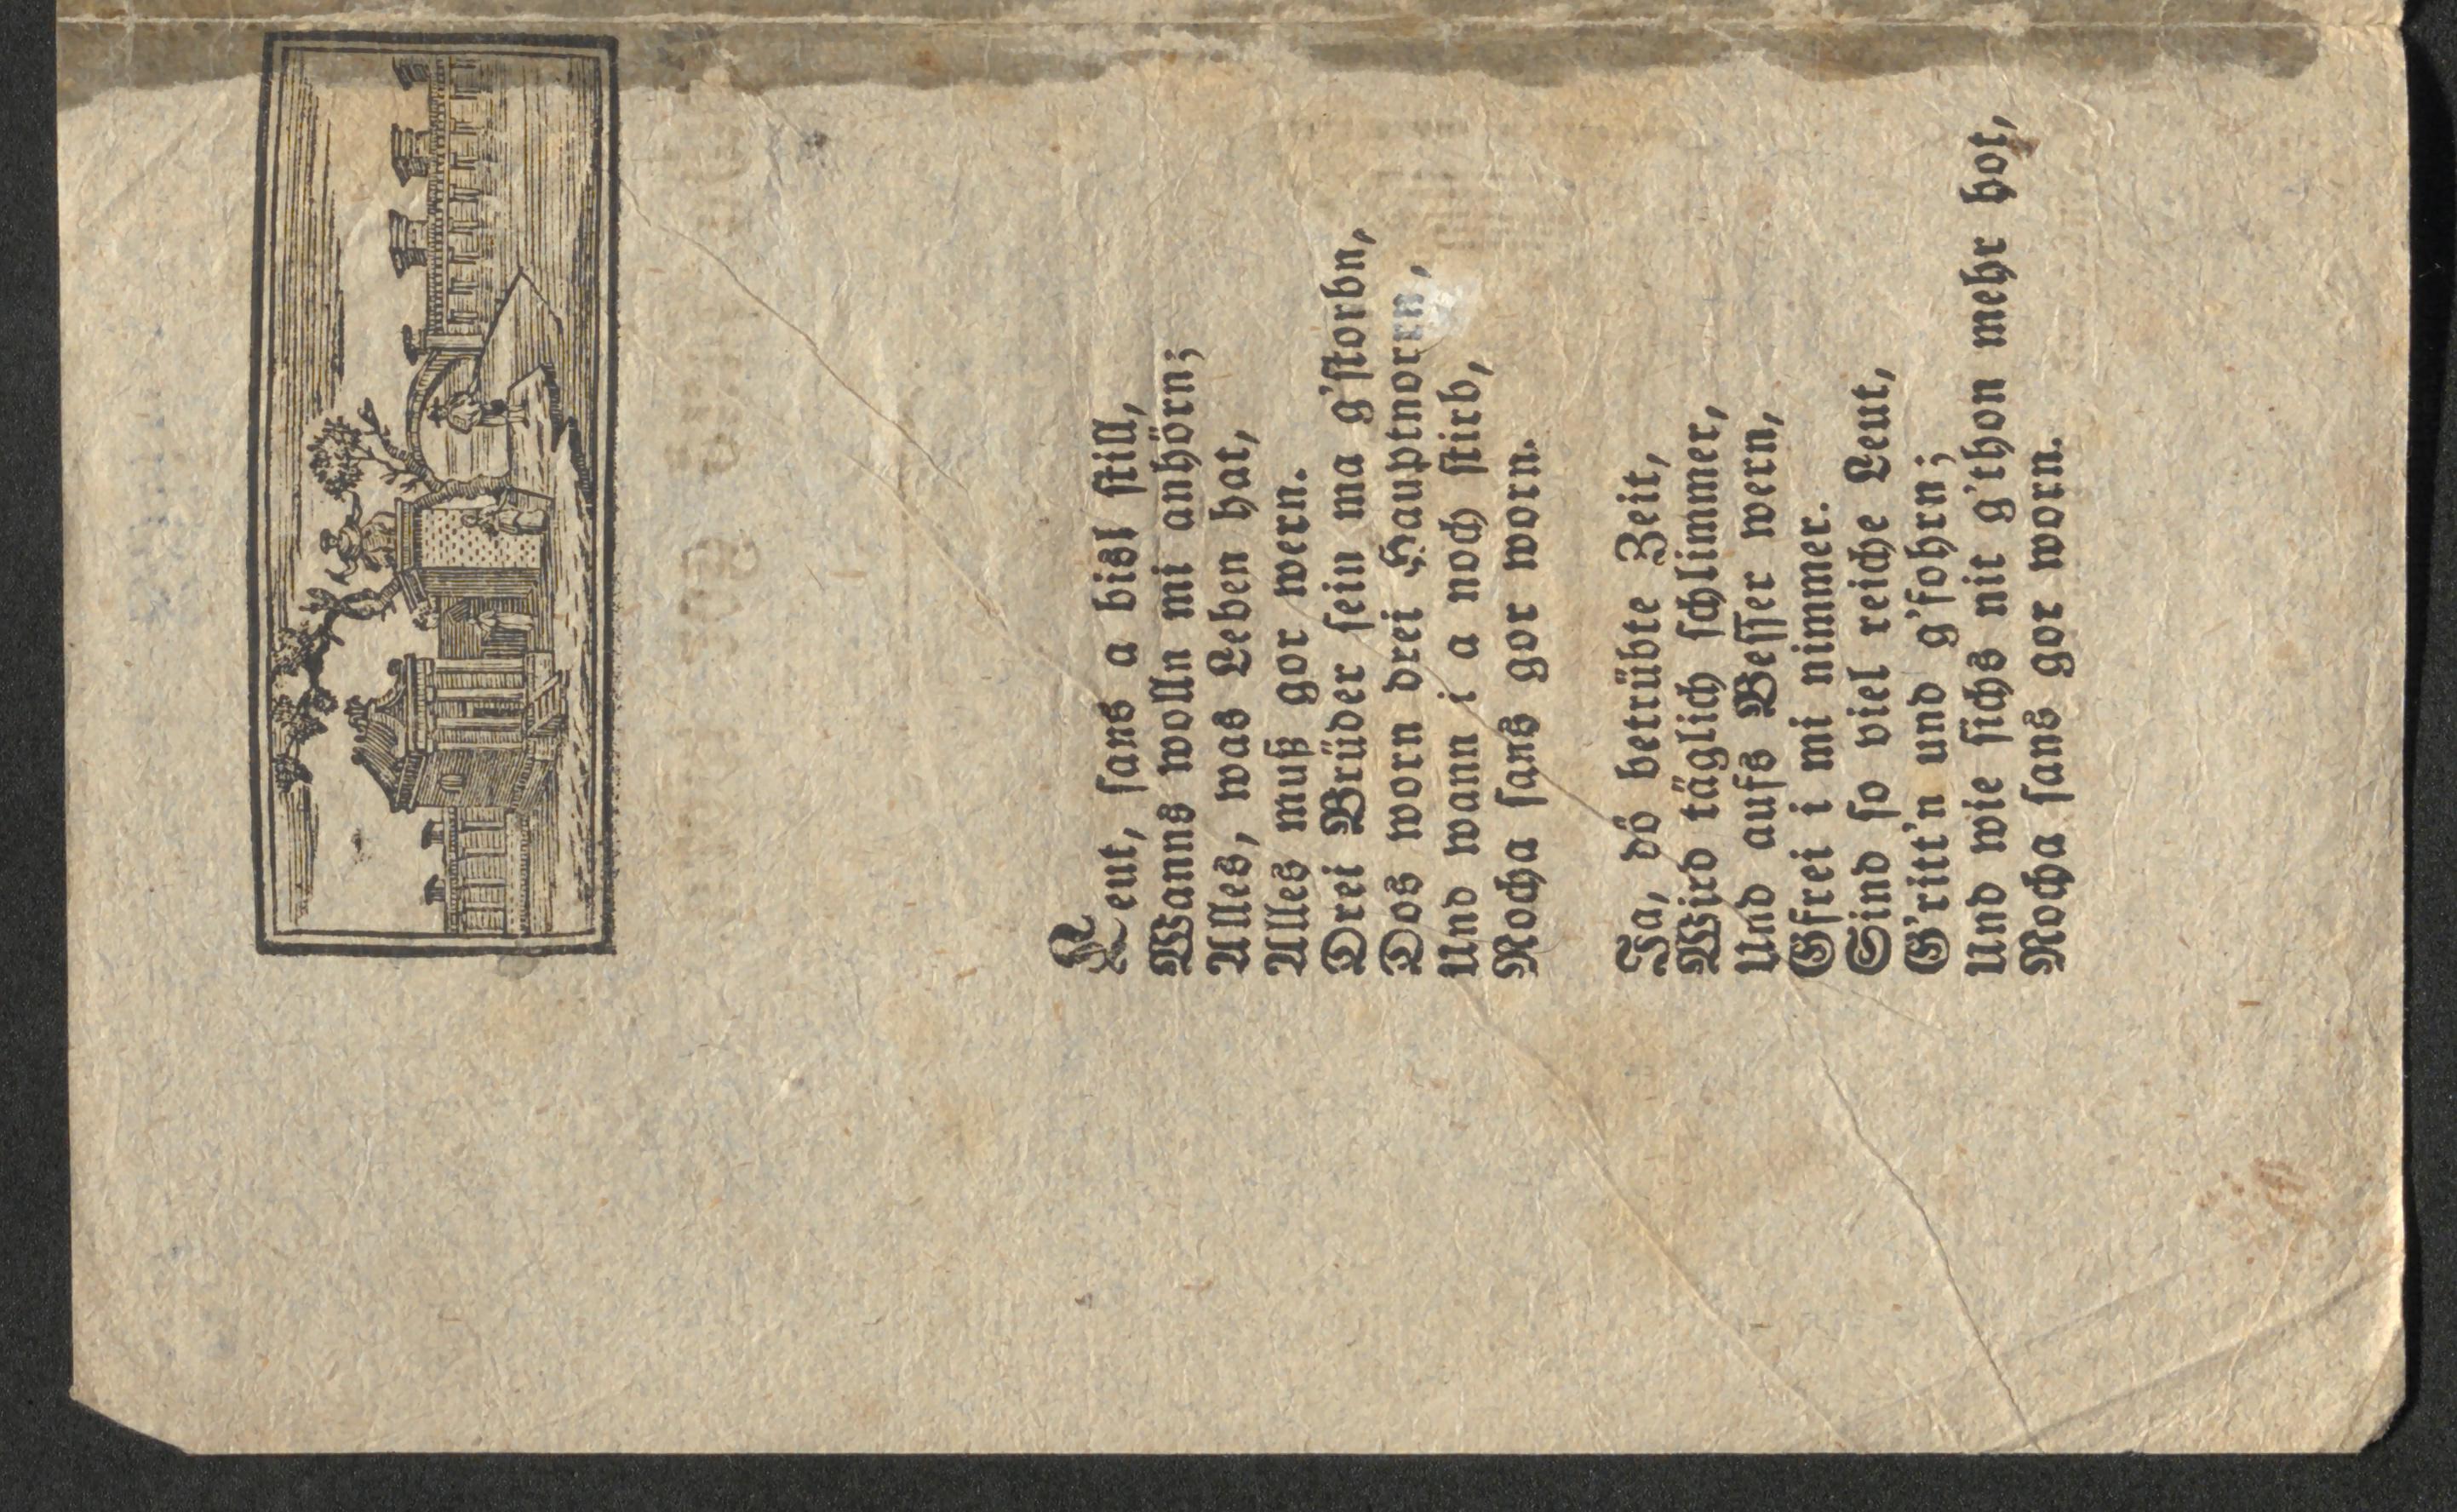 Leut, sans a bisl still,
Wanns wolln mi anhörn;
Alles, was Leben hat,
Alles muß gor wern.
Drei Brüder sein ma g'storbn,
Dos worn drei Hauptnorrn,
Und wann i a noch stirb,
Nocha sans gor worn.
Ja, dö betrübte Zeit,
Wird täglich schlimmer,
Und aufs Besser wern,
Gfrei i mi nimmer.
Sind so viel reiche Leut,
G'ritt'n und g'fohrn;
Und wie sichs nit g'thon mehr hot,
Nocha sans gor worn.